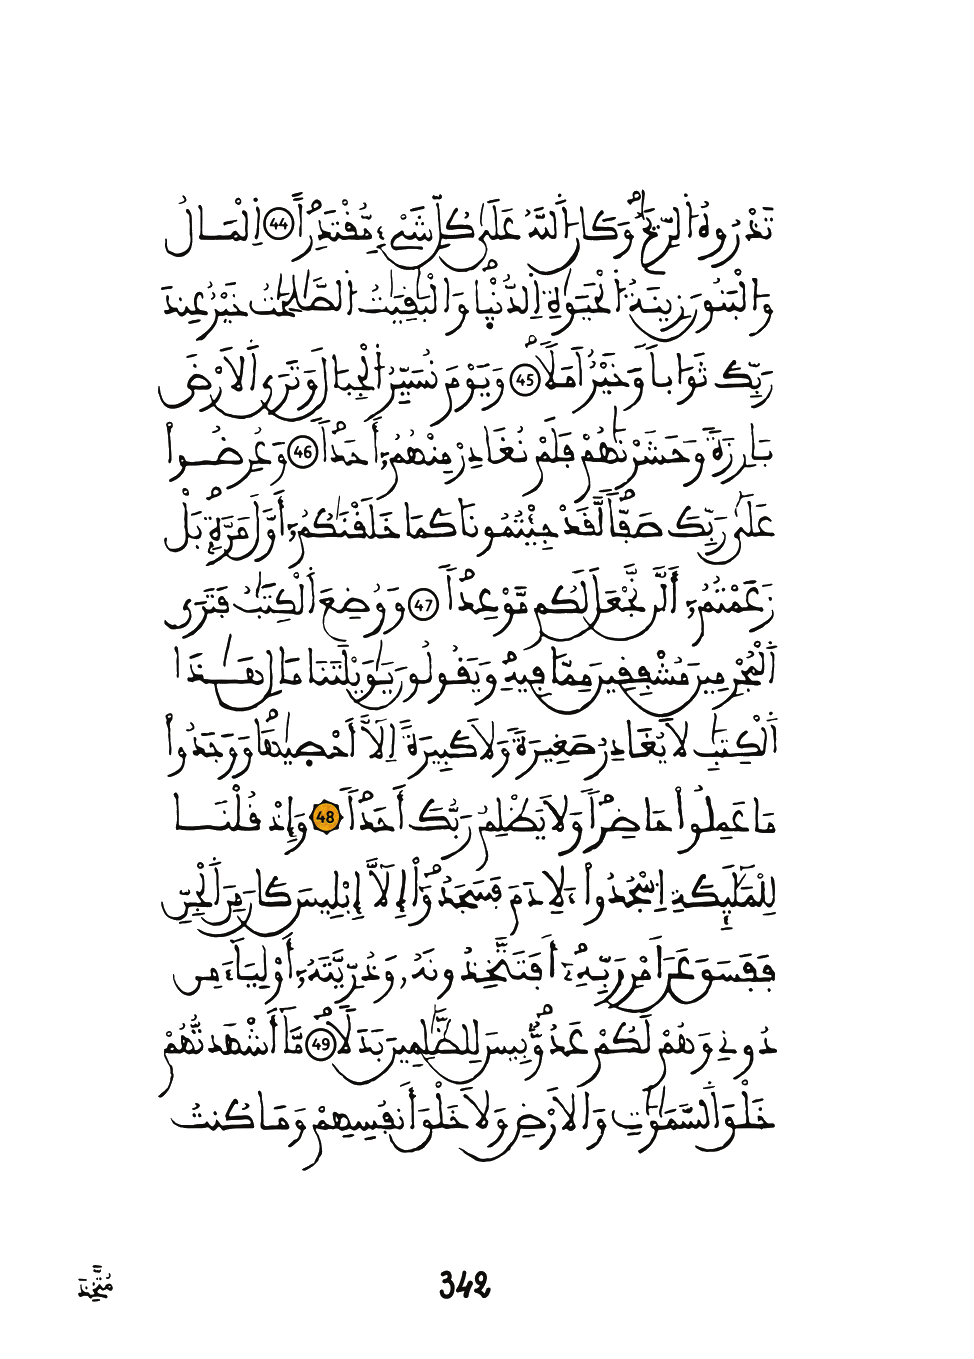 تَذْرُوهُ اُ۬لرِّيَٰحُۖ وَكَانَ اَ۬للَّهُ عَلَىٰ كُلِّ شَےْءٖ مُّقْتَدِراًۖ 44 اِ۬لْمَالُ
وَالْبَنُونَ زِينَةُ اُ۬لْحَيَوٰةِ اِ۬لدُّنْي۪اۖ وَالْبَٰقِيَٰتُ اُ۬لصَّٰلِحَٰتُ خَيْرٌ عِندَ
رَبِّكَ ثَوَاباٗ وَخَيْرٌ اَمَلاٗۖ 45 وَيَوْمَ نُسَيِّرُ اُ۬لْجِبَالَ وَتَرَي اَ۬لَارْضَ
بَارِزَةٗ وَحَشَرْنَٰهُمْ فَلَمْ نُغَادِرْ مِنْهُمُۥٓ أَحَداٗۖ 46 وَعُرِضُواْ
عَلَىٰ رَبِّكَ صَفّاٗۖ لَّقَدْ جِئْتُمُونَا كَمَا خَلَقْنَٰكُمُۥٓ أَوَّلَ مَرَّةِۢۖ بَلْ
زَعَمْتُمُۥٓ أَلَّن نَّجْعَلَ لَكُم مَّوْعِداٗۖ 47 وَوُضِعَ اَ۬لْكِتَٰبُ فَتَرَي
اَ۬لْمُجْرِمِينَ مُشْفِقِينَ مِمَّا فِيهِۖ وَيَقُولُونَ يَٰوَيْلَتَنَا مَالِ هَٰذَا
اَ۬لْكِتَٰبِ لَا يُغَادِرُ صَغِيرَةٗ وَلَا كَبِيرَةً اِلَّآ أَحْص۪يٰهَاۖ وَوَجَدُواْ
مَا عَمِلُواْ حَاضِراٗۖ وَلَا يَظْلِمُ رَبُّكَ أَحَداٗۖ 48 وَإِذْ قُلْنَا
لِلْمَلَٰٓئِكَةِ اِ۟سْجُدُواْ ءِلَادَمَ فَسَجَدُوٓاْۖ إِلَّآ إِبْلِيسَ كَانَ مِنَ اَ۬لْجِنِّ
فَفَسَقَ عَنَ اَمْرِ رَبِّهِۦٓۖ أَفَتَتَّخِذُونَهُۥ وَذُرِّيَّتَهُۥٓ أَوْلِيَآءَ مِن
دُونِے وَهُمْ لَكُمْ عَدُوُّۢۖ بِيسَ لِلظَّٰلِمِينَ بَدَلاٗۖ 49 مَّآ أَشْهَدتُّهُمْ
خَلْقَ اَ۬لسَّمَٰوَٰتِ وَالَارْضِ وَلَا خَلْقَ أَنفُسِهِمْ وَمَا كُنتُ
342
مُتَّخِذَ